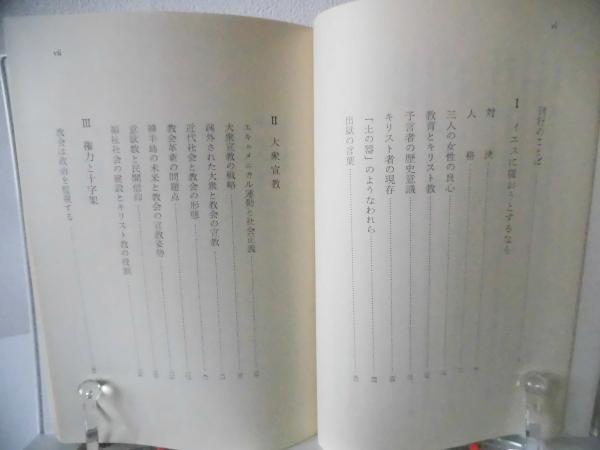 vi
刊行のことば
I　イエスに従おうとするなら
対　決
人　格
三人の女性の良心
教育とキリスト教
予言者の歴史意識
キリスト者の現存
「土の器」のようなわれら
出獄の言葉
vii
II　大衆宣教
エキュメニカル運動と社会正義
大衆宣教の戦略
疎外された大衆と教会の宣教
近代社会と教会の形態
教会革新の問題点
韓半島の未来と教会の宣教姿勢
意欲教と民間信仰
福祉社会の建設とキリスト教の役割
III　権力と十字架
教会は政府を監視する